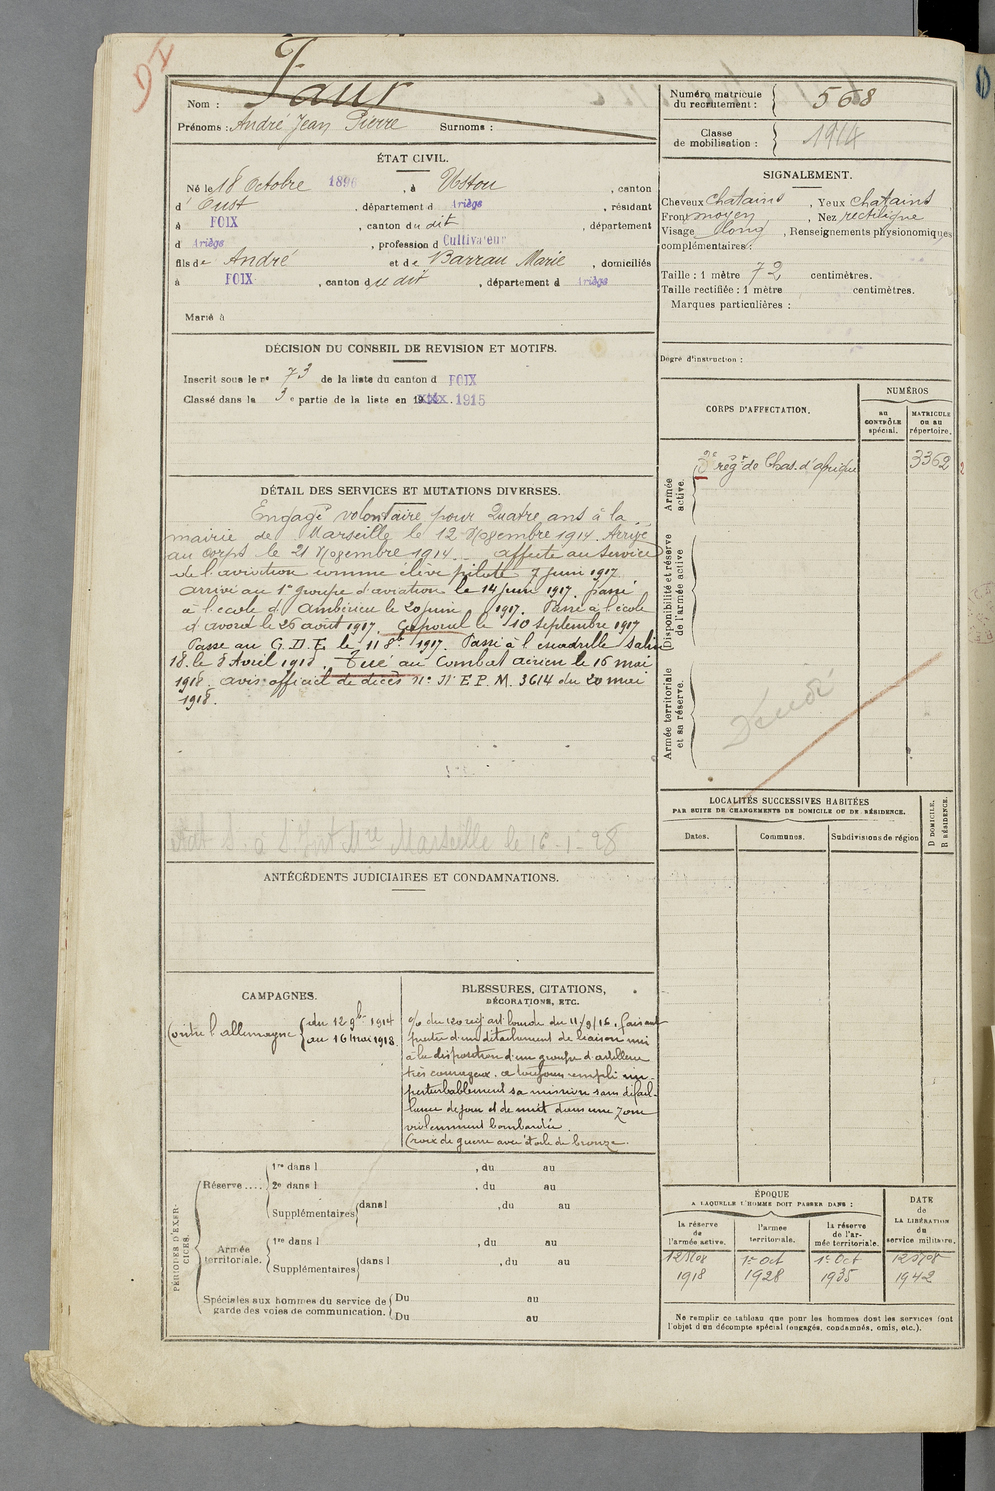 DI
Nom : Faur
Prénoms : André Jean Pierre Surnoms :
Numéro matricule
du recrutement : 568
Classe
de mobilisation : 1914
ÉTAT CIVIL.
Né le 18 Octobre 1896, à Ustou, canton
d' Oust, département d Ariège, résidant
à FOIX, canton du dit, département
d Ariège, profession d Cultivateur
fils de André et de Barrau Marie, domiciliés
à FOIX, canton du dit, département d Ariège
Marié à
SIGNALEMENT.
Cheveux chatains, Yeux chatains
Front moyen, Nez rectiligne
Visage long, Renseignements physionomiques
complémentaires :
Taille : 1 mètre 72 centimètres.
Taille rectifiée : 1 mètre centimètres.
Marques particulières :
Degré d'instruction :
DÉCISION DU CONSEIL DE REVISION ET MOTIFS.
Inscrit sous le n° 73 de la liste du canton d FOIX
Classé dans la 3e partie de la liste en 1915
DÉTAIL DES SERVICES ET MUTATIONS DIVERSES.
Engagé volontaire pour Quatre ans à la
mairie de Marseille le 12 Novembre 1914. Arrivé
au corps le 21 Novembre 1914. affecté au service
de l'aviation comme élève pilote 7 juin 1917.
arrivé au 1er groupe d'aviation le 14 juin 1917. passé
à l'école d'Ambérieu le 20 juin 1917. Passé à l'école
d'avord le 26 août 1917. Caporal le 10 septembre 1917
Passé au G.D.E. le 11 8bre 1917. Passé à l'escadrille
18. le 8 Avril 1918. Tué au Combat aérien le 16 mai
1918. avis officiel de décès n° E.P.M. 3614 du 20 mai
1918.
à St Marseille le 16-1-28
CORPS D'AFFECTATION.
NUMÉROS
au
CONTRÔLE
spécial.
MATRICULE
ou au
répertoire.
Armée
active.
rég't de Chas. d'afrique 3362
Disponibilité et réserve
de l'armée active
Armée territoriale
et sa réserve.
Décédé
LOCALITÉS SUCCESSIVES HABITÉES
PAR SUITE DE CHANGEMENTS DE DOMICILE OU DE RÉSIDENCE.
Dates. Communes. Subdivisions de région
D DOMICILE.
R RÉSIDENCE.
ANTÉCÉDENTS JUDICIAIRES ET CONDAMNATIONS.
CAMPAGNES.
Contre l'allemagne du 12 9bre 1914
au 16 mai 1918.
BLESSURES, CITATIONS,
DÉCORATIONS, ETC.
du 120 reg art lourde du 11/9/16. faisant
partie d'un détachement de liaison mis
à la disposition d'un groupe d'artillerie
très courageux, a toujours rempli im-
perturbablement sa mission sans défail-
lance de jour et de nuit dans une zone
violemment bombardée.
Croix de guerre avec étoile de bronze.
PÉRIODES D'EXER-
CICES.
Réserve....
1re dans l , du au
2e dans l , du au
Supplémentaires dans l , du au
Armée
territoriale.
1re dans l , du au
Supplémentaires dans l , du au
Spéciales aux hommes du service de
garde des voies de communication.
Du au
Du au
ÉPOQUE
A LAQUELLE L'HOMME DOIT PASSER DANS :
DATE
DE
LA LIBÉRATION
du
service militaire.
la réserve
de
l'armée active.
l'armée
territoriale.
la réserve
de l'ar-
mée territoriale.
12 Nov 1er Oct 1er Oct 12 Nov
1918 1928 1935 1942
Ne remplir ce tableau que pour les hommes dont les services font
l'objet d'un décompte spécial (engagés, condamnés, omis, etc.).